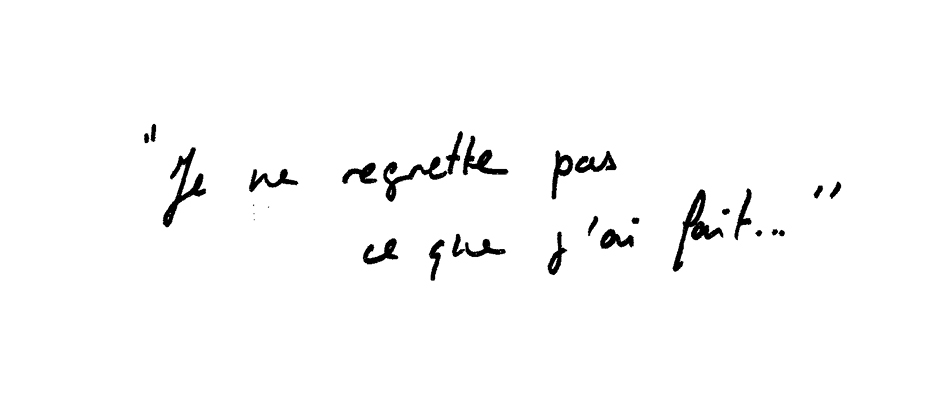 "Je ne regrette pas
ce que j'ai fait..."